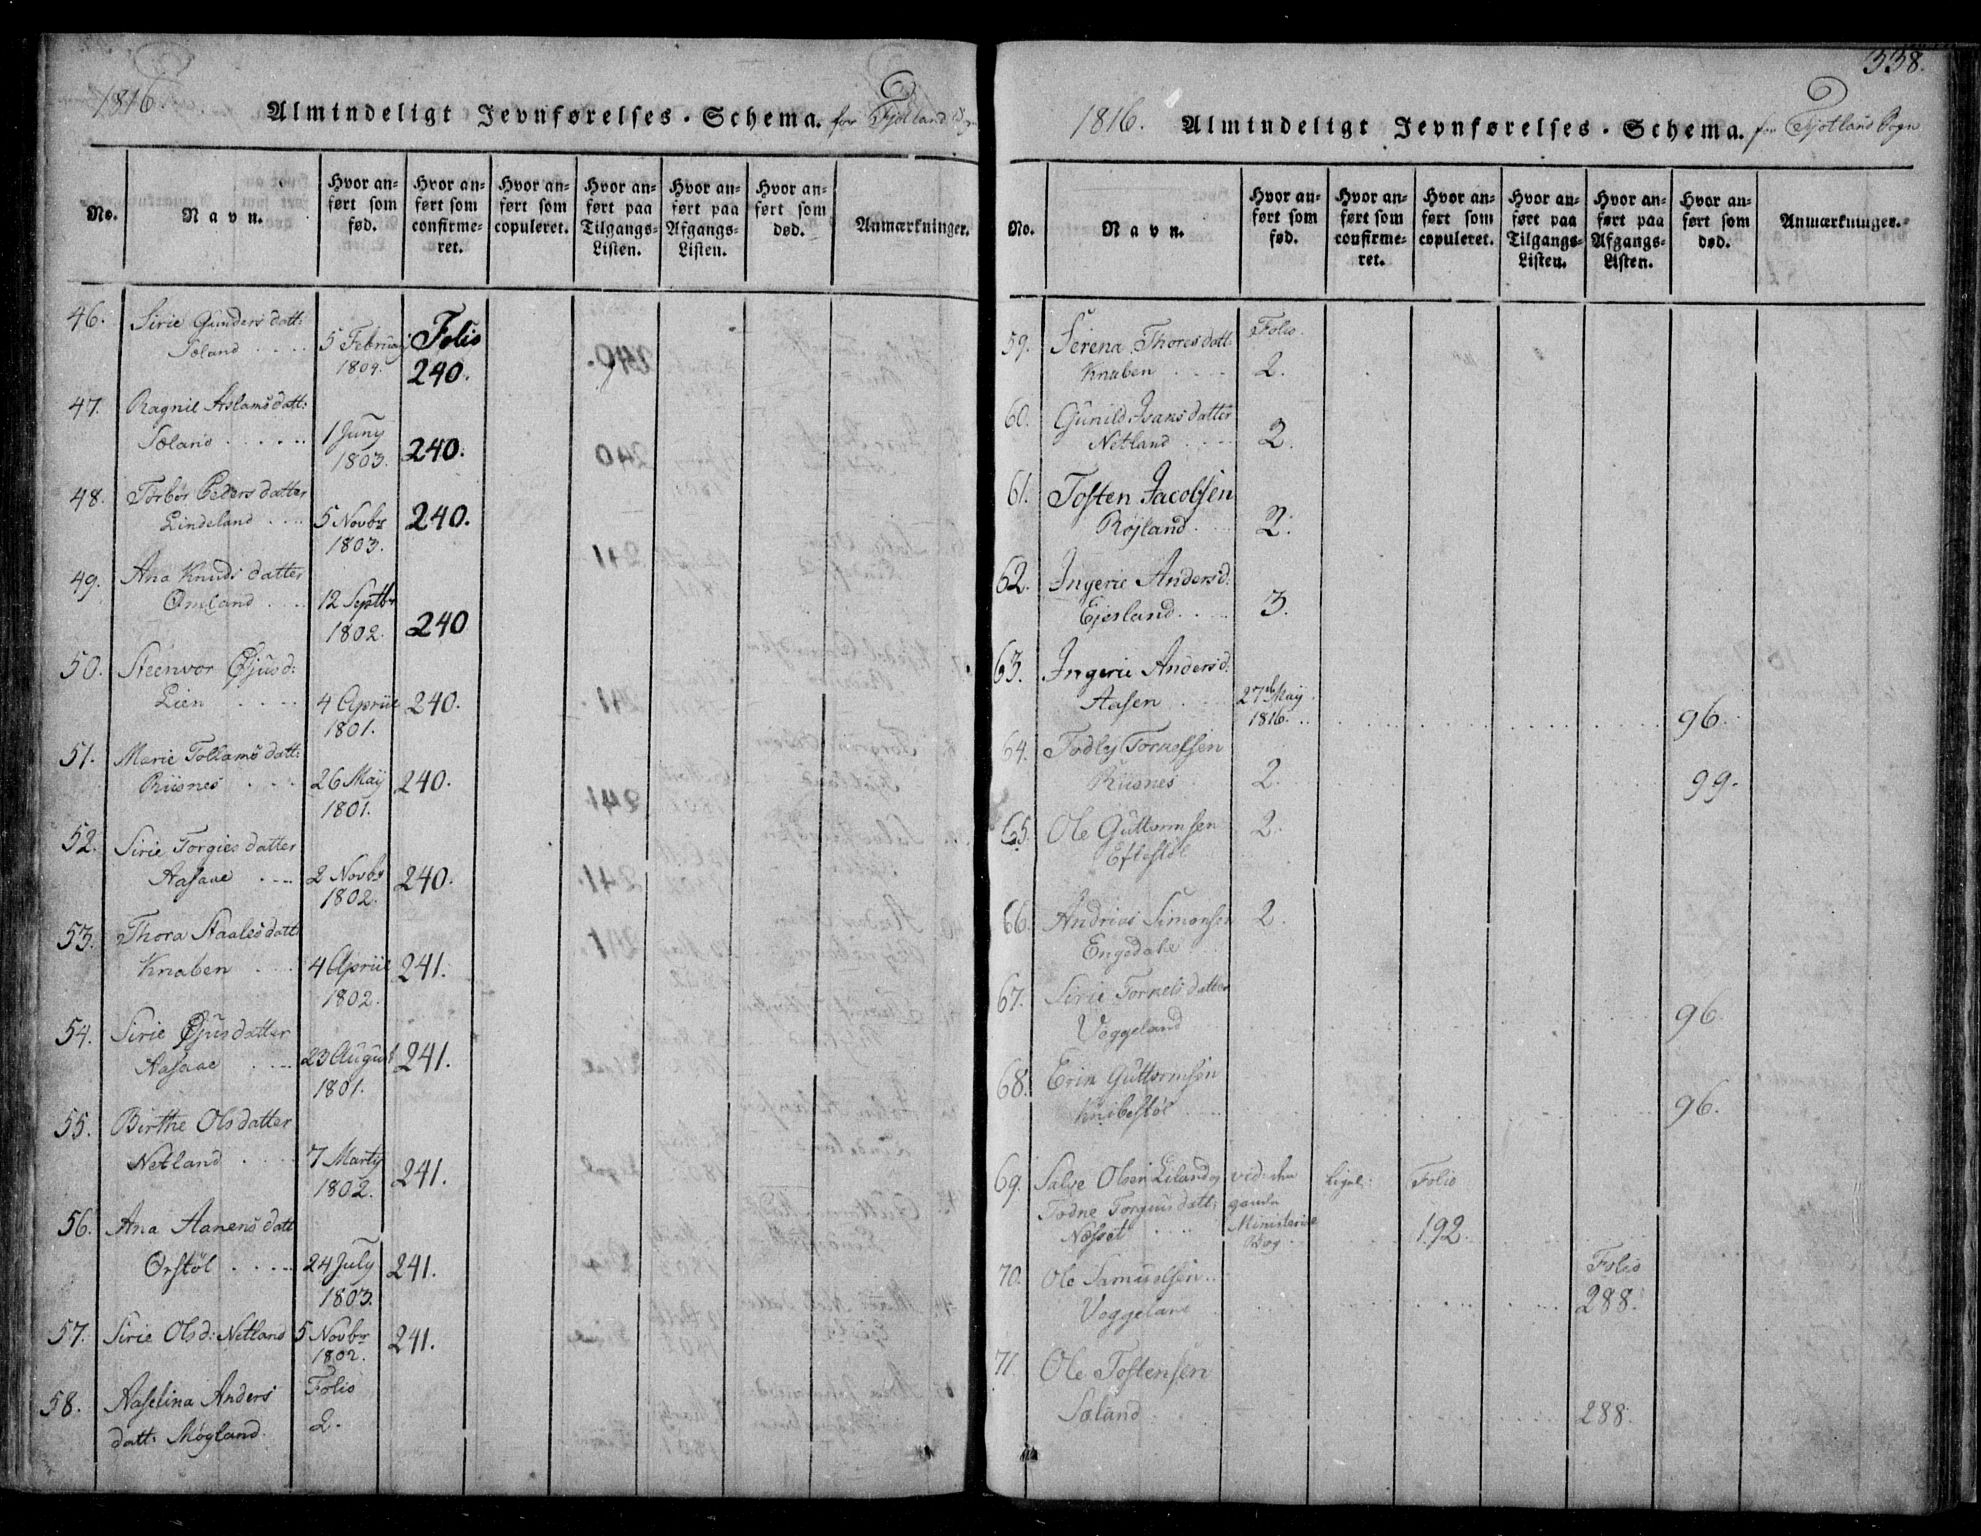 1816. Almindeligt Jevnførelses-Schema. for Fjotland
No. Navn. Hvor anført som fød. Hvor anført som confirmeret. Hvor anført som copuleret. Hvor anført paa Tilgangs-Listen. Hvor anført paa Afgangs-Listen. Hvor anført som død. Anmærkninger.
46. Sirie Gunders datt: 5 Februarj Folio
Sœland 1804. 240.
47. Ragnil Aslams datt:
Sœland 1 Juny 1803. 240.
48. Torbør Peders datter
Lindeland 5 Novbr 1803. 240.
49. Ana Knuds datter
Omland 12 Septbr 1802. 240
50. Steenvor Øjusd:
Lien 4 Apriil 1801. 240.
51. Marie Tollams datt:
Riisnes 26 May 1801. 240.
52. Sirie Torgies datter
Aasaae 2 Novbr 1802. 240.
53. Thora Staales datt:
Knaben 4 Apriil 1802. 241.
54. Sirie Øjusdatter
Aasaae 23 August 1801. 241.
55. Birthe Olsdatter
Netland 7 Marty 1802. 241.
56. Ana Aanens datt
Orstøl 24 July 1803. 241.
57. Sirie Olsd: Netland 5 Novbr 1802. 241.
58. Aaselina Anders Folio
datt: Møgland 2.
338.
1816. Almindeligt Jevnførelses-Schema. for Fjotland Sogn
No. Navn. Hvor anført som fød. Hvor anført som confirmeret. Hvor anført som copuleret. Hvor anført paa Tilgangs-Listen. Hvor anført paa Afgangs-Listen. Hvor anført som død. Anmærkninger.
59. Serena Thores datt: Folio
Knaben 2.
60. Gunild Isaks datter
Netland 2.
61. Tosten Jacobsen
Røjland 2.
62. Ingerie Andersd:
Ejesland 3.
63. Ingerie Andersd:
Aasen 27de May 1816. 96.
64. Todly Tornessen
Riisnes 2. 99.
65. Ole Guttormsen 2.
Eftestøl
66. Andrias Simonsen 2.
Engedale
67. Sirie Tornels datter
Voggeland 96.
68. Erik Guttormsen
Knibestøl 96.
69. Salve Olsen Eiland og vid: den ligel: Folio
Todne Torguis datt: gamle
Næsset Ministerial Bog 192.
70. Ole Samuelsen Folio
Voggeland 288.
71. Ole Tostensen
Sœland 288.